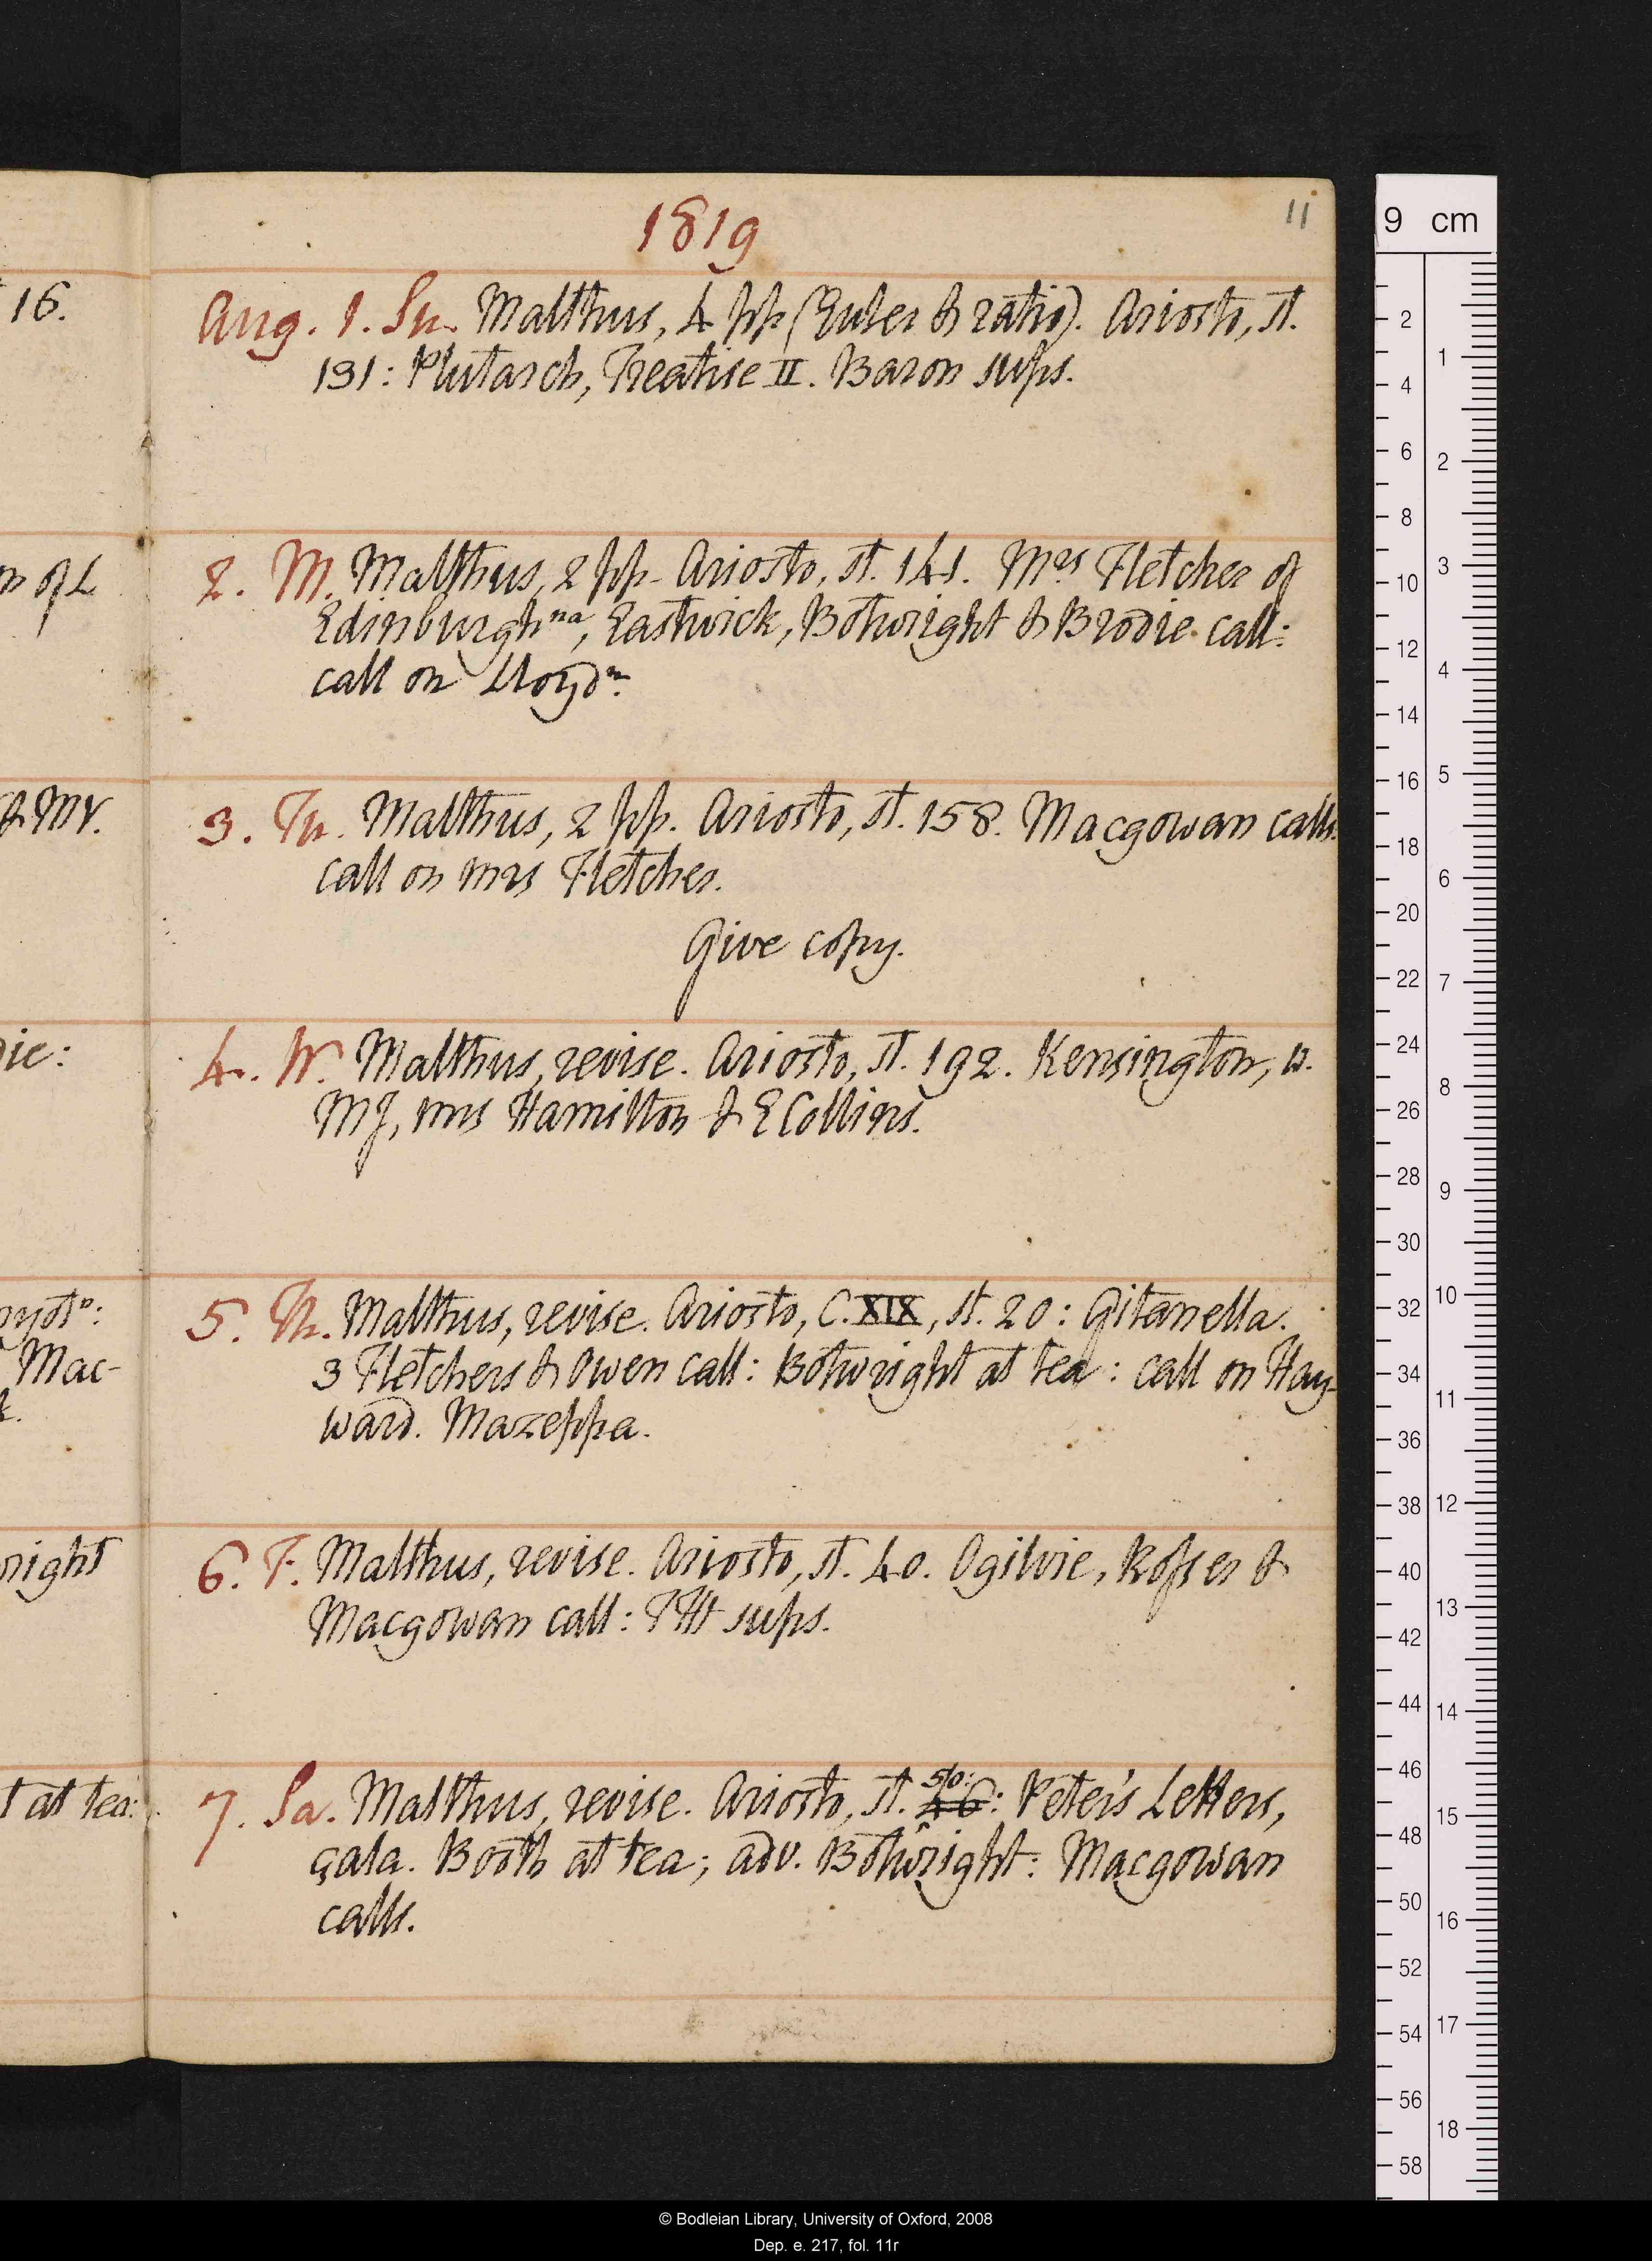 1819
11
16.
Aug. 1. Su. Malthus, 4 pp (Euler & ratio). Ariosto, st.
131: Plutarch, Treatise II. Baron sups.
n of L
2. M. Malthus, 2 pp. Ariosto, st. 141. Mrs Fletcher of
Edinburgh na, Eastwick, Botwright & Brodie call:
call on Lloyd n.
& MV.
3. Tu. Malthus, 2 pp. Ariosto, st. 158. Macgowan calls.
call on mrs Fletcher.
Give copy.
die:
4. W. Malthus, revise. Ariosto, st. 192. Kensington, w.
MJ, mrs Hamilton & E Collins.
5. Th. Malthus, revise. Ariosto, C. XIX, st. 20: Gitanella.
3 Fletchers & Owen call: Botwright at tea: call on Hay-
ward. Mazeppa.
Mac-
right
6. F. Malthus, revise. Ariosto, st. 40. Ogilvie, Rosser &
Macgowan call: THt sups.
t at tea:
7. Sa. Malthus, revise. Ariosto, st. 46 50: Peter's Letters,
çala. Booth at tea; adv. Botwright: Macgowan
calls.
9 cm
2 4 6 8 10 12 14 16 18 20 22 24 26 28 30 32 34 36 38 40 42 44 46 48 50 52 54 56 58
1 2 3 4 5 6 7 8 9 10 11 12 13 14 15 16 17 18
© Bodleian Library, University of Oxford, 2008
Dep. e. 217, fol. 11r